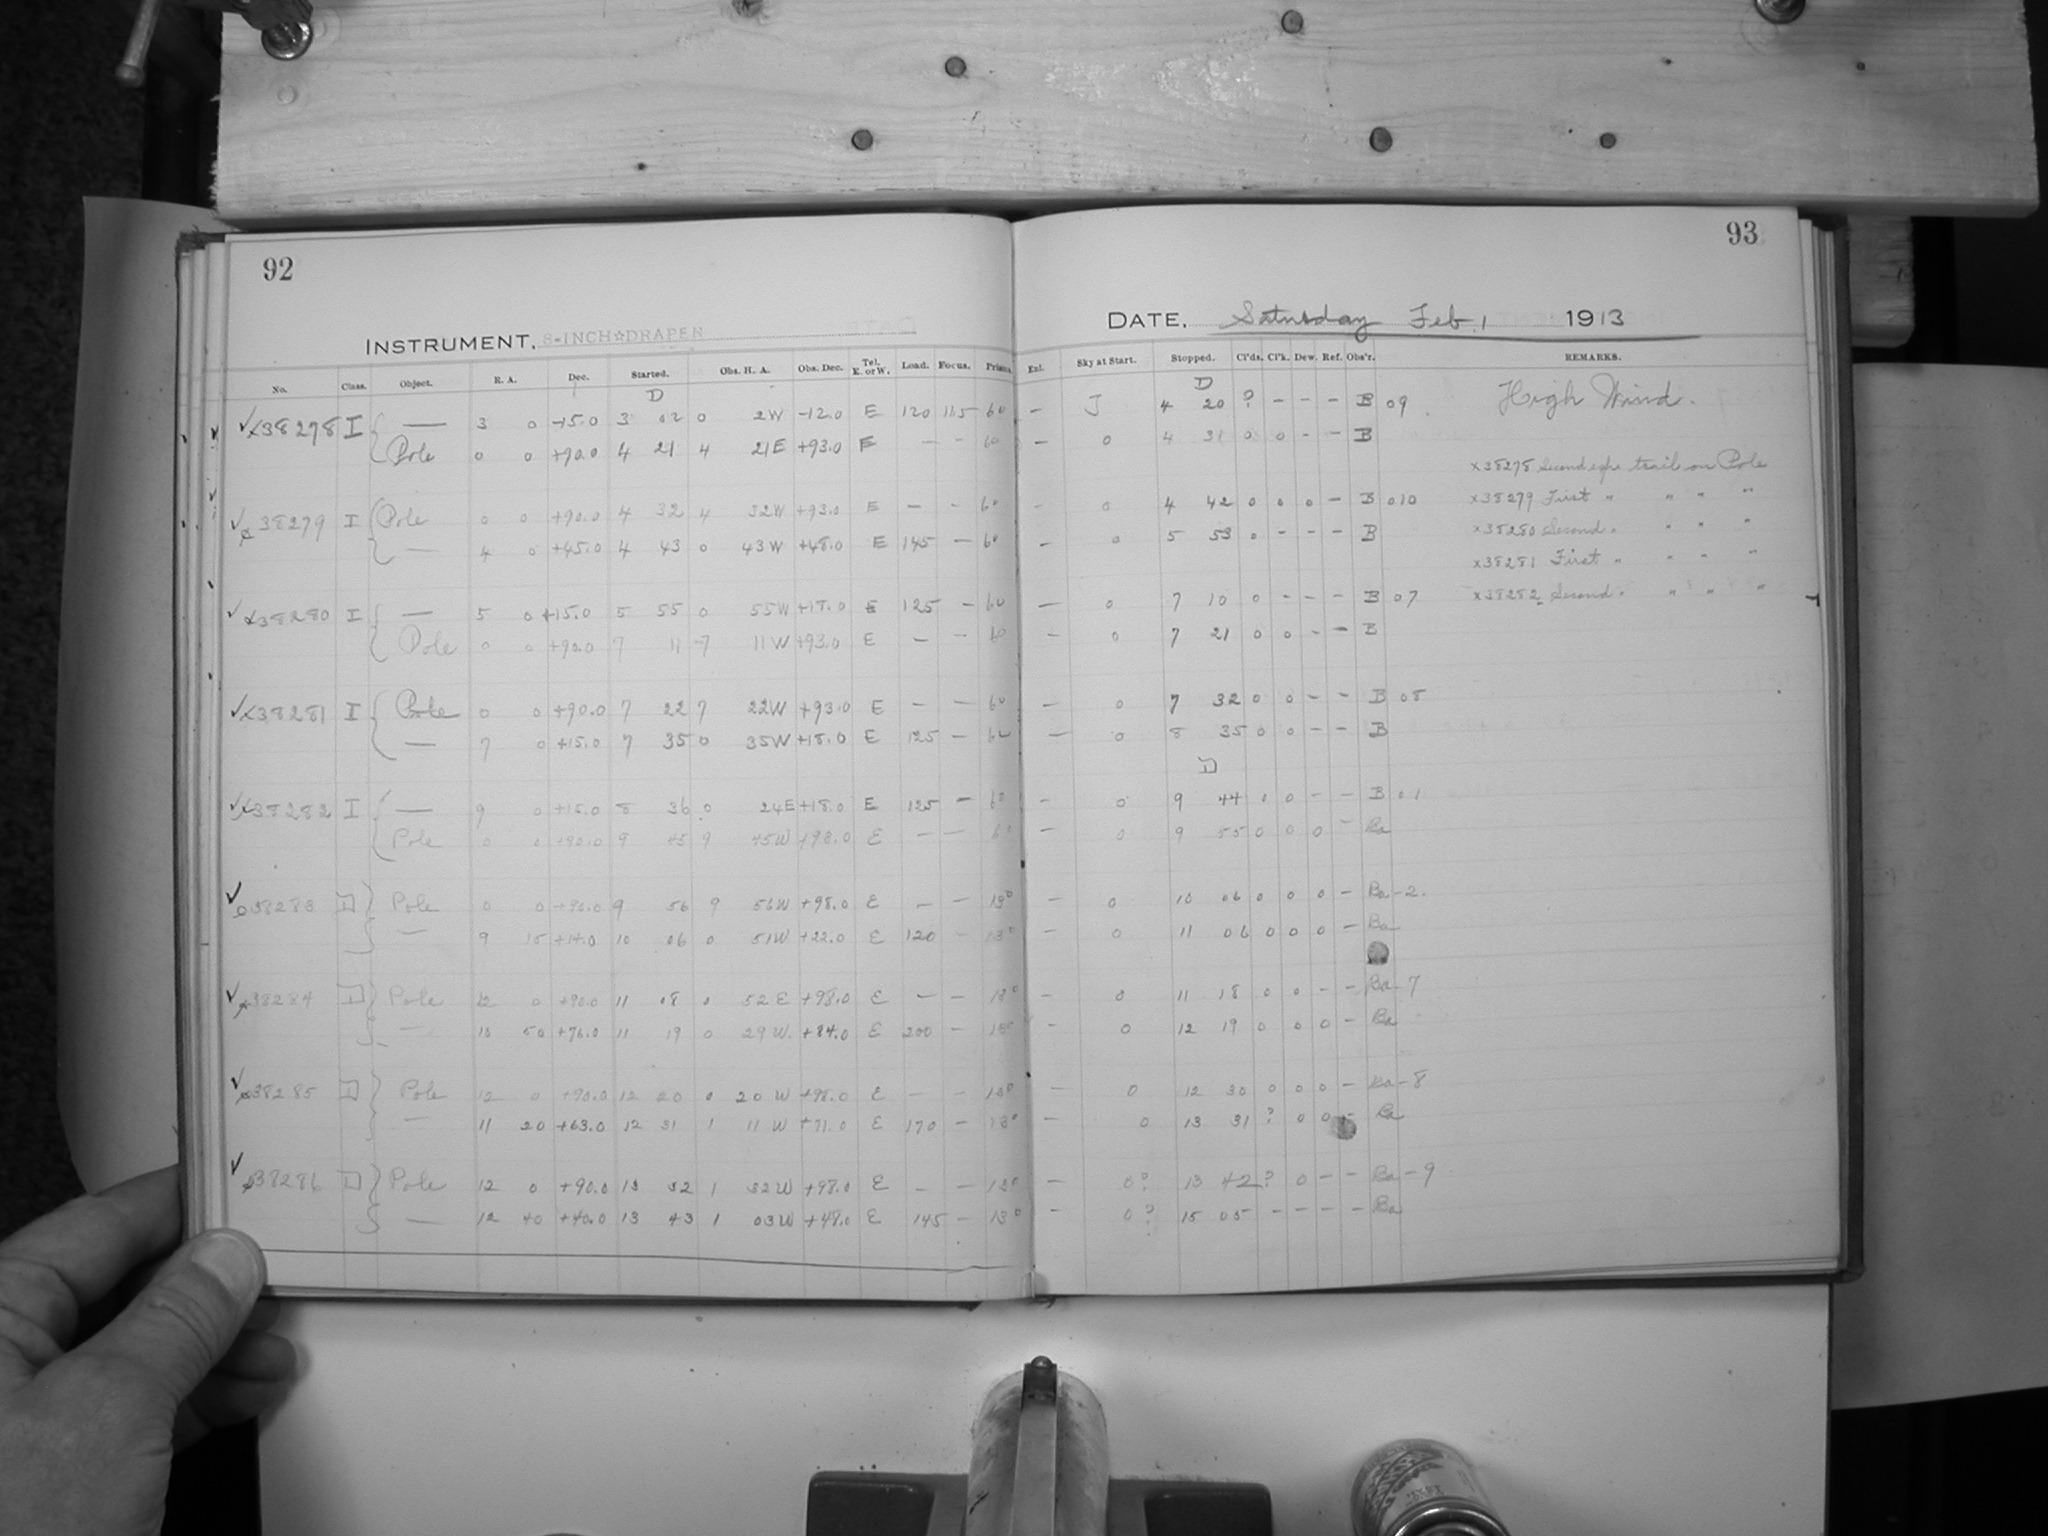 92
INSTRUMENT, 8-INCH☆DRAPER
No. Class. Object. R. A. Dec. Started. Obs. H. A. Obs. Dec. Tel. E. or W. Load. Focus. Prisms.
D
x38278 I — 3 0 -15.0 3 02 0 2W -12.0 E 120 115 60
Pole 0 0 +90.0 4 21 4 21E +93.0 E — - 60
38279 I Pole 0 0 +90.0 4 32 4 32W +93.0 E — - 60
— 4 0 +45.0 4 43 0 43W +48.0 E 145 — 60
x38280 I — 5 0 +15.0 5 55 0 55W +18.0 E 125 - 60
Pole 0 0 +90.0 7 11 7 11W +93.0 E — - 60
x38281 I Pole 0 0 +90.0 7 22 7 22W +93.0 E — - 60
— 7 0 +15.0 7 35 0 35W +18.0 E 125 — 60
x38282 I — 9 0 +15.0 8 36 0 24E +18.0 E 125 — 60
Pole 0 0 +90.0 9 45 9 45W +98.0 E — — 60
38283 D Pole 0 0 +90.0 9 56 9 56W +98.0 E — - 130
— 9 15 +14.0 10 06 0 51W +22.0 E 120 - 130
x38284 D Pole 12 0 +90.0 11 08 0 52E +98.0 E — - 130
— 10 50 +76.0 11 19 0 29W +84.0 E 200 — 130
x38285 D Pole 12 0 +90.0 12 20 0 20W +98.0 E — — 130
— 11 20 +63.0 12 31 1 11W +71.0 E 170 — 130
38286 D Pole 12 0 +90.0 13 32 1 32W +98.0 E — - 130
— 12 40 +40.0 13 43 1 03W +48.0 E 145 — 130
93
DATE, Saturday Feb. 1 1913
Ext. Sky at Start. Stopped. Cl'ds. Cl'k. Dew. Ref. Obs'r. REMARKS.
D
— J 4 20 ? - - - B 09 High Wind.
— 0 4 31 0 0 - - B
x38278 Second expr trail on Pole
— 0 4 42 0 0 0 — B 010 x38279 First " " " "
— 0 5 53 0 - - - B x38280 Second " " " "
x38281 First " " " "
— 0 7 10 0 - - - B 07 x38282 Second " " " "
— 0 7 21 0 0 - - B
— 0 7 32 0 0 - - B 08
— 0 8 35 0 0 - - B
D
— 0 9 44 0 0 - - B 01
— 0 9 55 0 0 0 - Ba
— 0 10 06 0 0 0 — Ba-2.
— 0 11 06 0 0 0 — Ba
— 0 11 18 0 0 - - Ba-7
— 0 12 19 0 0 0 — Ba
— 0 12 30 0 0 0 — Ba-8
— 0 13 31 ? 0 0 - Ba
— 0? 13 42 ? 0 - - Ba-9
— 0? 15 05 - - - - Ba